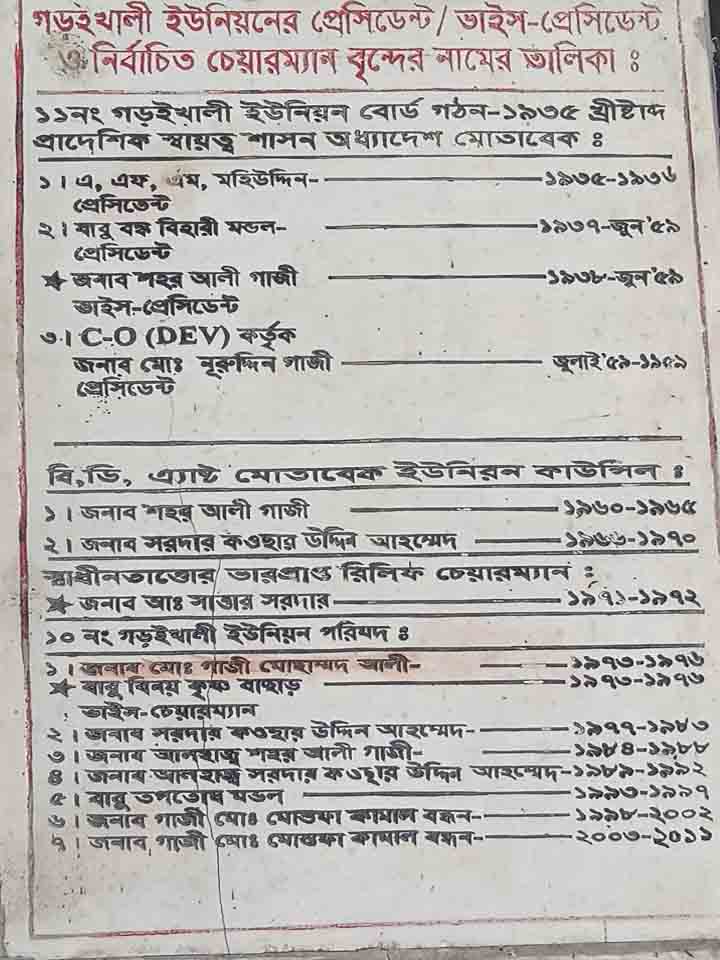 গড়ইখালী ইউনিয়নের প্রেসিডেন্ট/ ভাইস-প্রেসিডেন্ট
ও নির্বাচিত চেয়ারম্যান বৃন্দের নামের তালিকা :
১১নং গড়ইখালী ইউনিয়ন বোর্ড গঠন-১৯৩৫ খ্রীষ্টাব্দ
প্রাদেশিক স্বায়ত্ব শাসন অধ্যাদেশ মোতাবেক :
১। এ, এফ, এম, মহিউদ্দিন- ১৯৩৫-১৯৩৬
প্রেসিডেন্ট
২। বাবু বঙ্ক বিহারী মন্ডল- ১৯৩৭-জুন'৫৯
প্রেসিডেন্ট
★ জনাব শহর আলী গাজী ১৯৩৮-জুন'৫৯
ভাইস-প্রেসিডেন্ট
৩। C-O (DEV) কর্তৃক
জনাব মোঃ নূরুদ্দিন গাজী জুলাই'৫৯-১৯৫৯
প্রেসিডেন্ট
বি,ডি, এ্যাক্ট মোতাবেক ইউনিয়ন কাউন্সিল :
১। জনাব শহর আলী গাজী ১৯৬০-১৯৬৫
২। জনাব সরদার কওছার উদ্দিন আহম্মেদ ১৯৬৬-১৯৭০
স্বাধীনতাত্তোর ভারপ্রাপ্ত রিলিফ চেয়ারম্যান :
★ জনাব আঃ সাত্তার সরদার ১৯৭১-১৯৭২
১০ নং গড়ইখালী ইউনিয়ন পরিষদ :
১। জনাব মোঃ গাজী মোহাম্মদ আলী- ১৯৭৩-১৯৭৬
★ বাবু বিনয় কৃষ্ণ বাছাড় ১৯৭৩-১৯৭৬
ভাইস-চেয়ারম্যান
২। জনাব সরদার কওছার উদ্দিন আহম্মেদ- ১৯৭৭-১৯৮৩
৩। জনাব আলহাজ্ব শহর আলী গাজী- ১৯৮৪-১৯৮৮
৪। জনাব আলহাজ্ব সরদার কওছার উদ্দিন আহম্মেদ-১৯৮৯-১৯৯২
৫। বাবু তপতোষ মন্ডল ১৯৯৩-১৯৯৭
৬। জনাব গাজী মোঃ মোস্তফা কামাল বন্ধন- ১৯৯৮-২০০২
৭। জনাব গাজী মোঃ মোস্তফা কামাল বন্ধন- ২০০৩-২০১১